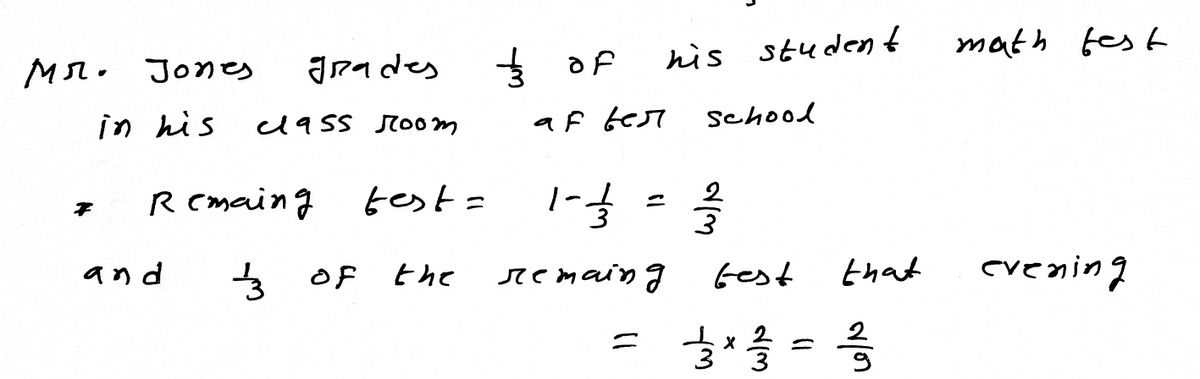 Mr. Jones grades 1/3 of his student math test
in his class room after school
* Remaing test = 1-1/3 = 2/3
and 1/3 of the remaing test that evening
= 1/3 x 2/3 = 2/9